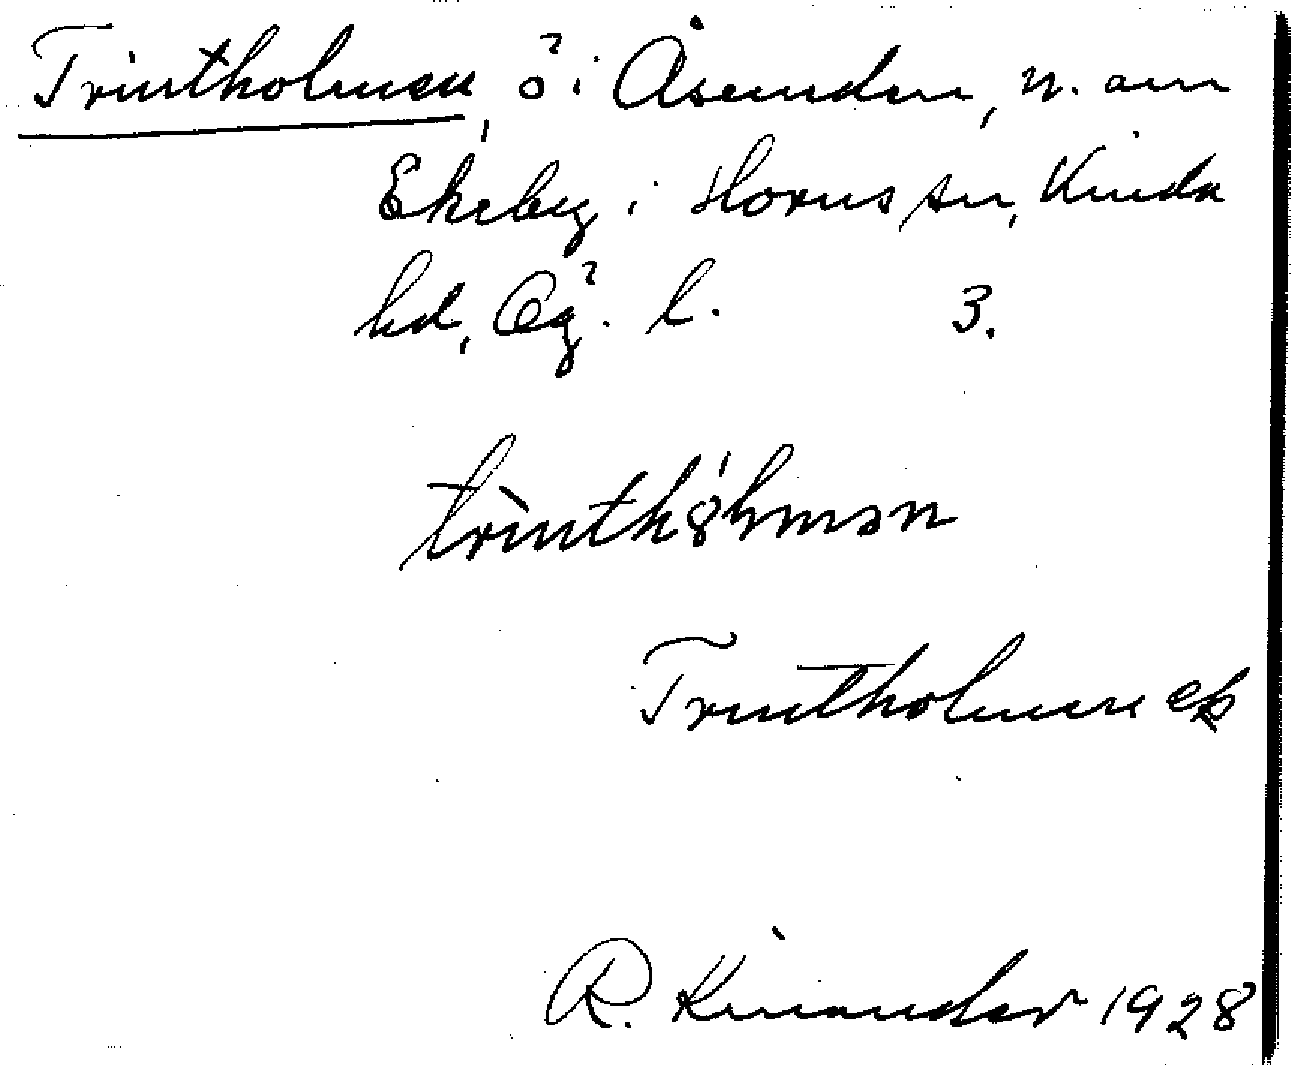 Trintholmen, ö i Åsunden, n. om
Ekeby i Horns sn, Kinda
hd, Ög. l. 3.
Trintholmen ek
R. Kinander 1928